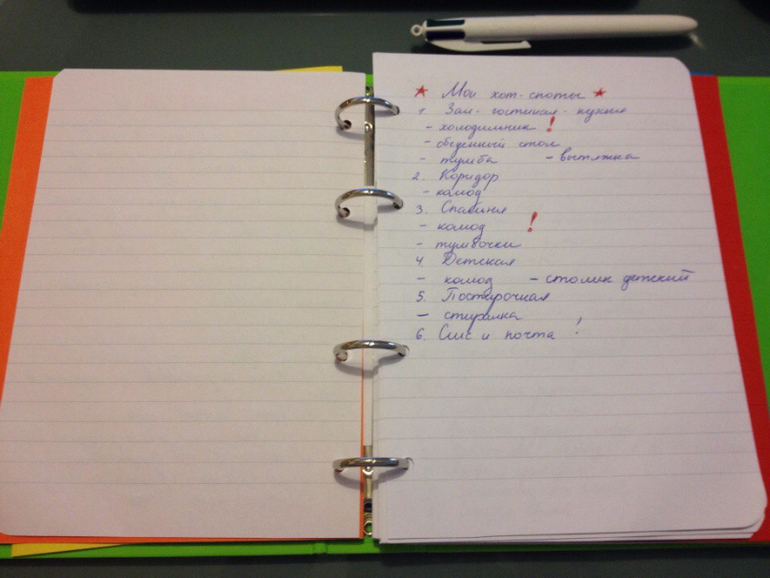 ★ Мои хот-споты ★
1. Зал-гостиная-кухня
- холодильник !
- обеденный стол
- тумба - вытяжка
2. Коридор
- комод
3. Спальня
- комод !
- тумбочки
4. Детская
- комод - столик детский
5. Постирочная
- стиралка
6. Смс и почта !